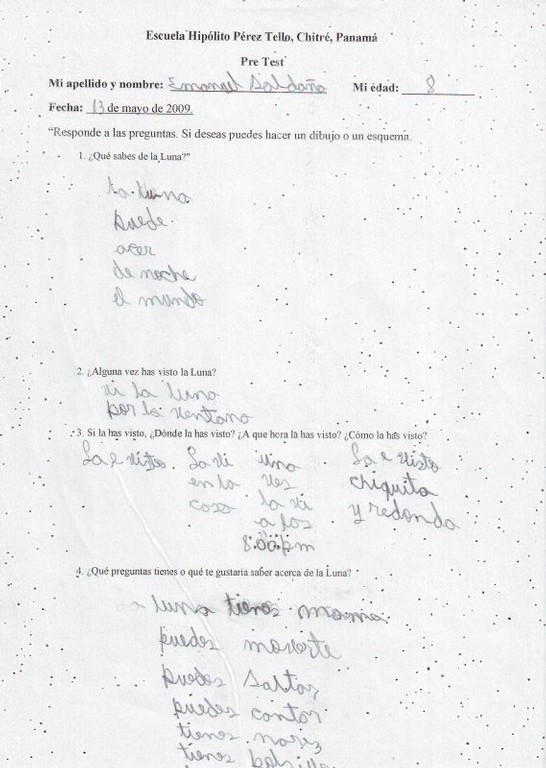 Escuela Hipólito Pérez Tello, Chitré, Panamá
Pre Test
Mi apellido y nombre: Emanuel Saldaña Mi edad: 8
Fecha: 13 de mayo de 2009.
"Responde a las preguntas. Si deseas puedes hacer un dibujo o un esquema.
1. ¿Qué sabes de la Luna?"
La luna
puede
acer
de noche
el mundo
2. ¿Alguna vez has visto la Luna?
vi la luna
por la ventana
3. Si la has visto, ¿Dónde la has visto? ¿A que hora la has visto? ¿Cómo la has visto?
La e visto La vi una La e visto
en la vez chiquita
casa la vi y redonda
a las
8:00pm
4. ¿Qué preguntas tienes o qué te gustaría saber acerca de la Luna?
a luna tienes mama
puedes moverte
puedes saltar
puedes contar
tienes nariz
tienes